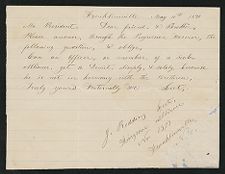 Franklinville May 10th 1891
Mr. President. Dear friend & Brother.
Please answer, through the Progressive Farmer, the
following questions, & oblige.
Can an officer, or member, of a sub-
alliance, get a Demit, simply & solely because
he is not in harmony with the Brethren.
Truly yours Fraternally &c Sect.
J. Redding Sect.
Alliance
No 1373
Franklinville
N.C.